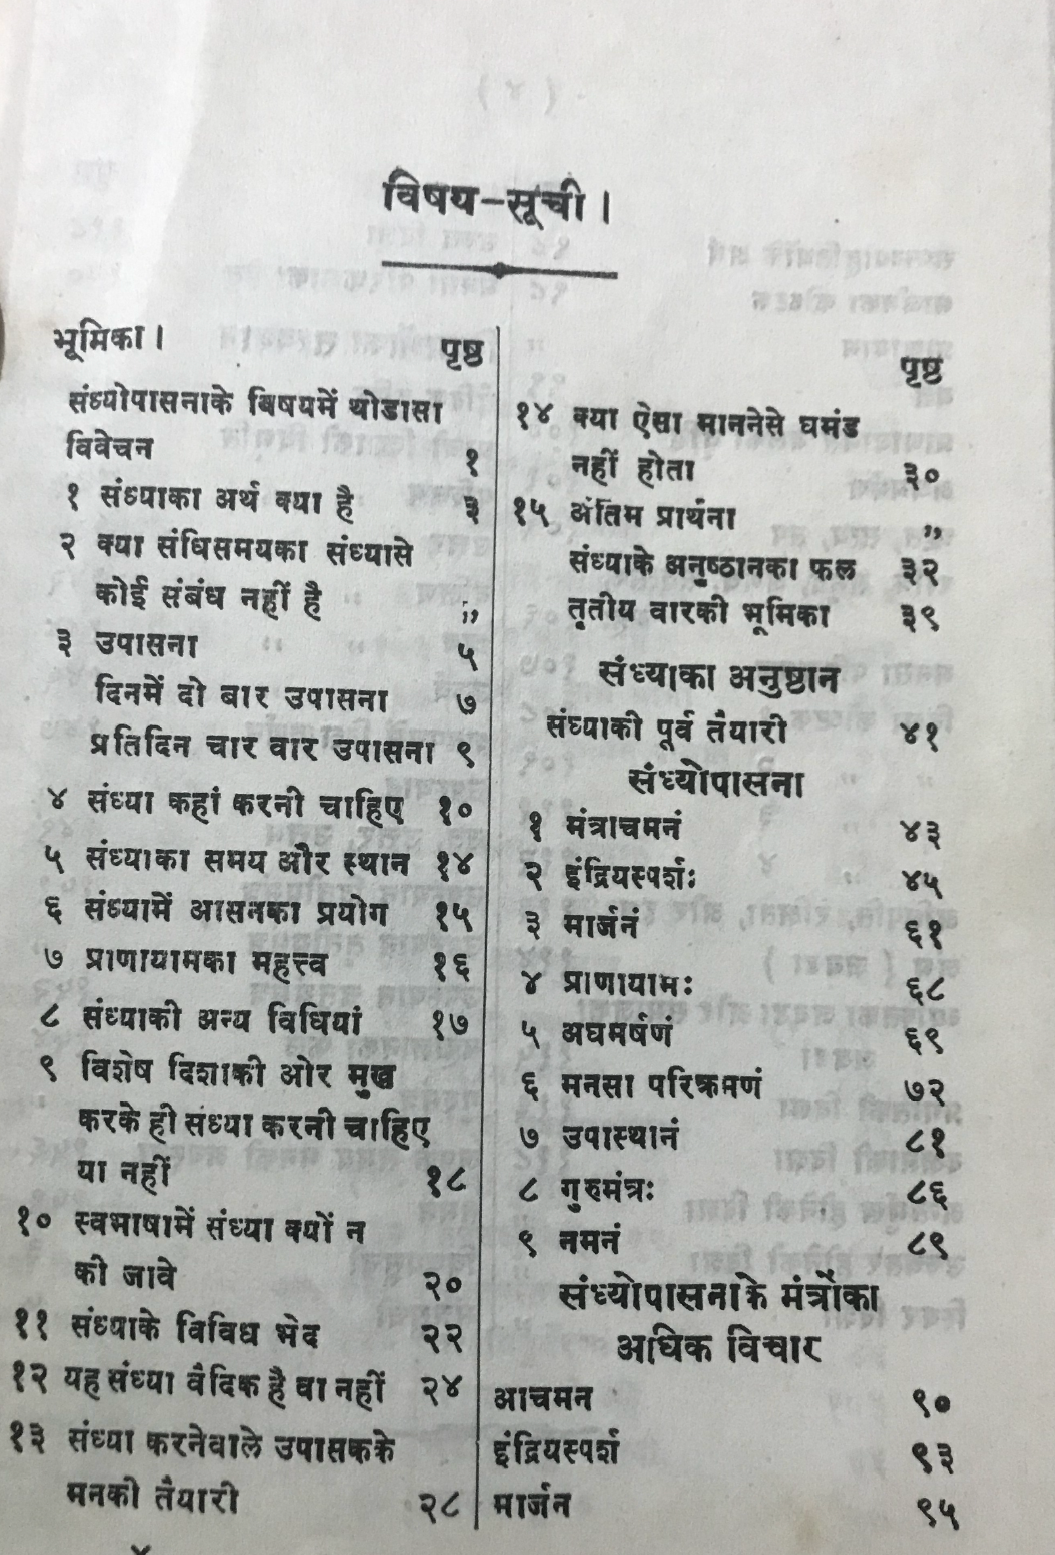 विषय-सूची ।
भूमिका ।
पृष्ठ
संध्योपासनाके विषयमें थोडासा
विवेचन १
१ संध्याका अर्थ क्या है ३
२ क्या संधिसमयका संध्यासे
कोई संबंध नहीं है ,,
३ उपासना ५
दिनमें दो बार उपासना ७
प्रतिदिन चार वार उपासना ९
४ संध्या कहां करनी चाहिए १०
५ संध्याका समय और स्थान १४
६ संध्यामें आसनका प्रयोग १५
७ प्राणायामका महत्त्व १६
८ संध्याकी अन्य विधियां १७
९ विशेष दिशाकी ओर मुख
करके ही संध्या करनी चाहिए
या नहीं १८
१० स्वभाषामें संध्या क्यों न
की जावे २०
११ संध्याके विविध भेद २२
१२ यह संध्या वैदिक है वा नहीं २४
१३ संध्या करनेवाले उपासकके
मनकी तैयारी २८
पृष्ठ
१४ क्या ऐसा माननेसे घमंड
नहीं होता ३०
१५ अंतिम प्रार्थना ,,
संध्याके अनुष्ठानका फल ३२
तृतीय वारकी भूमिका ३९
संध्याका अनुष्ठान
संध्याकी पूर्व तैयारी ४१
संध्योपासना
१ मंत्राचमनं ४३
२ इंद्रियस्पर्शः ४५
३ मार्जनं ६१
४ प्राणायामः ६८
५ अघमर्षणं ६९
६ मनसा परिक्रमणं ७२
७ उपास्थानं ८१
८ गुरुमंत्रः ८६
९ नमनं ८९
संध्योपासनाके मंत्रोंका
अधिक विचार
आचमन ९०
इंद्रियस्पर्श ९३
मार्जन ९५